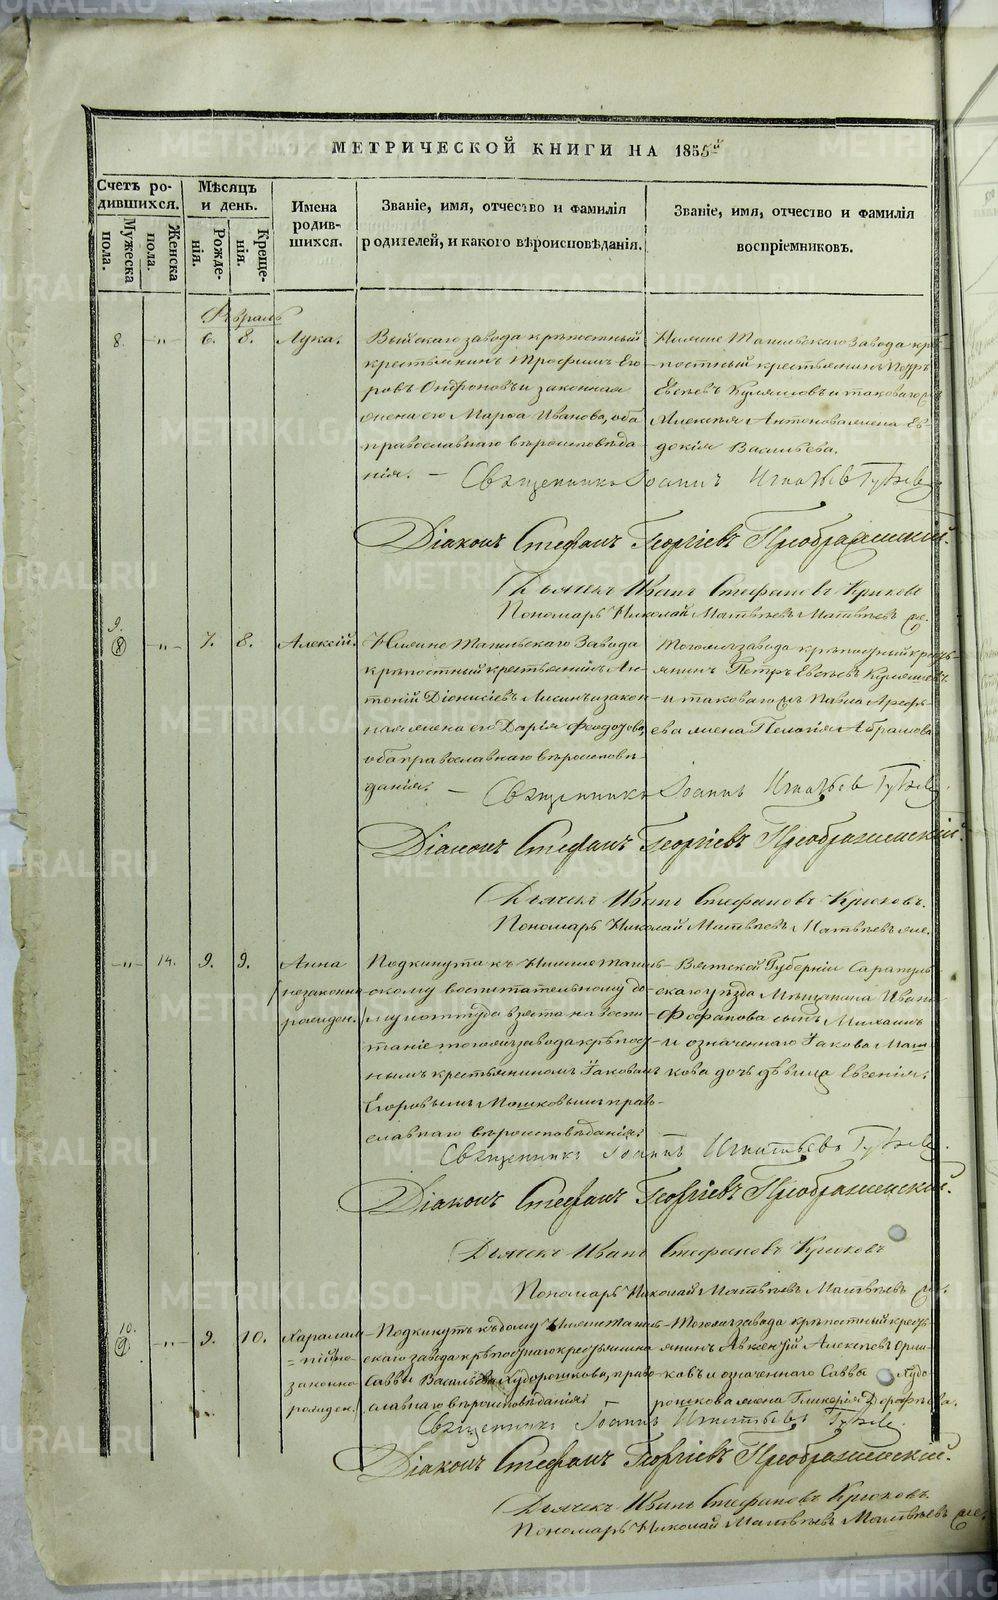 МЕТРИЧЕСКОЙ КНИГИ НА 1855й
Счетъ ро-
дившихся.
Мужеска
пола.
Женска
пола.
Мѣсяцъ
и день.
Рожде-
нія.
Креще-
нія.
Имена
родив-
шихся.
Званіе, имя, отчество и фамилія
родителей, и какого вѣроисповѣданія.
Званіе, имя, отчество и фамилія
воспріемниковъ.
Февраль
8. -"- 6. 8. Лука.
Выйскаго завода крѣпостный
крестьянинъ Трофимъ Его
ровъ и законная
жена его Марѳа Иванова, оба
православнаго вѣроисповѣда
нія. –
Нижне Тагильскаго Завода крѣ-
постный крестьянинъ Петръ
Евсѣевъ и таковаго
Алексѣя Антонова жена Ев
докія Васильева.
Священникъ Іоаннъ Игнатьевъ
Діаконъ Стефанъ Георгіевъ Преображенскій.
Дьячекъ Иванъ Стефановъ Крюковъ
Пономарь Николай Матвѣевъ Матвѣевъ
9.
(8) -"- 7. 8. Алексій.
Нижне Тагильскаго Завода
крѣпостный крестьянинъ Ан
тоній Діонисіевъ и закон
ная жена его Дарія Феодорова,
оба православнаго вѣроисповѣ
данія. –
Тогожъ завода крѣпостный кресть
янинъ Петръ Евсѣевъ
и таковагожъ Павла Ареѳь
ева жена Пелагія Абрамова
Священникъ Іоаннъ Игнатьевъ
Діаконъ Стефанъ Георгіевъ Преображенскій.
Дьячекъ Иванъ Стефановъ Крюковъ.
Пономарь Николай Матвѣевъ Матвѣевъ
-"- 14. 9. 9. Анна
незаконно
рожден.
Подкинута къ Нижнетагиль
скому воспитательному до
му и оттуда взята на воспи
таніе тогожъ завода крѣпост
нымъ крестьяниномъ Іаковомъ
Егоровымъ Машковымъ право
славнаго вѣроисповѣданія.
Вятской Губерніи Сарапуль
скаго уѣзда Мѣщанина Ивана
Фофанова сынъ Михаилъ
и означеннаго Іакова Маш
кова дочь дѣвица Евгенія.
Священникъ Іоаннъ Игнатьевъ
Діаконъ Стефанъ Георгіевъ Преображенскій.
Дьячекъ Иванъ Стефановъ Крюковъ
Пономарь Николай Матвѣевъ Матвѣевъ
10.
(9) -"- 9. 10. Харалам
пій не
законно
рожден.
Подкинутъ къ дому Нижнетагиль
скаго завода крѣпостнаго крестьянина
Саввы Васильева Худорошкова, право
славнаго вѣроисповѣданія.
Тогожъ завода крѣпостный кресть
янинъ Авксентій Алексѣевъ
и означеннаго Саввы Худо
рошкова жена Гликерія Дороѳѣева.
Священникъ Іоаннъ Игнатьевъ
Діаконъ Стефанъ Георгіевъ Преображенскій.
Дьячекъ Иванъ Стефановъ Крюковъ.
Пономарь Николай Матвѣевъ Матвѣевъ
METRIKI.GASO-URAL.RU